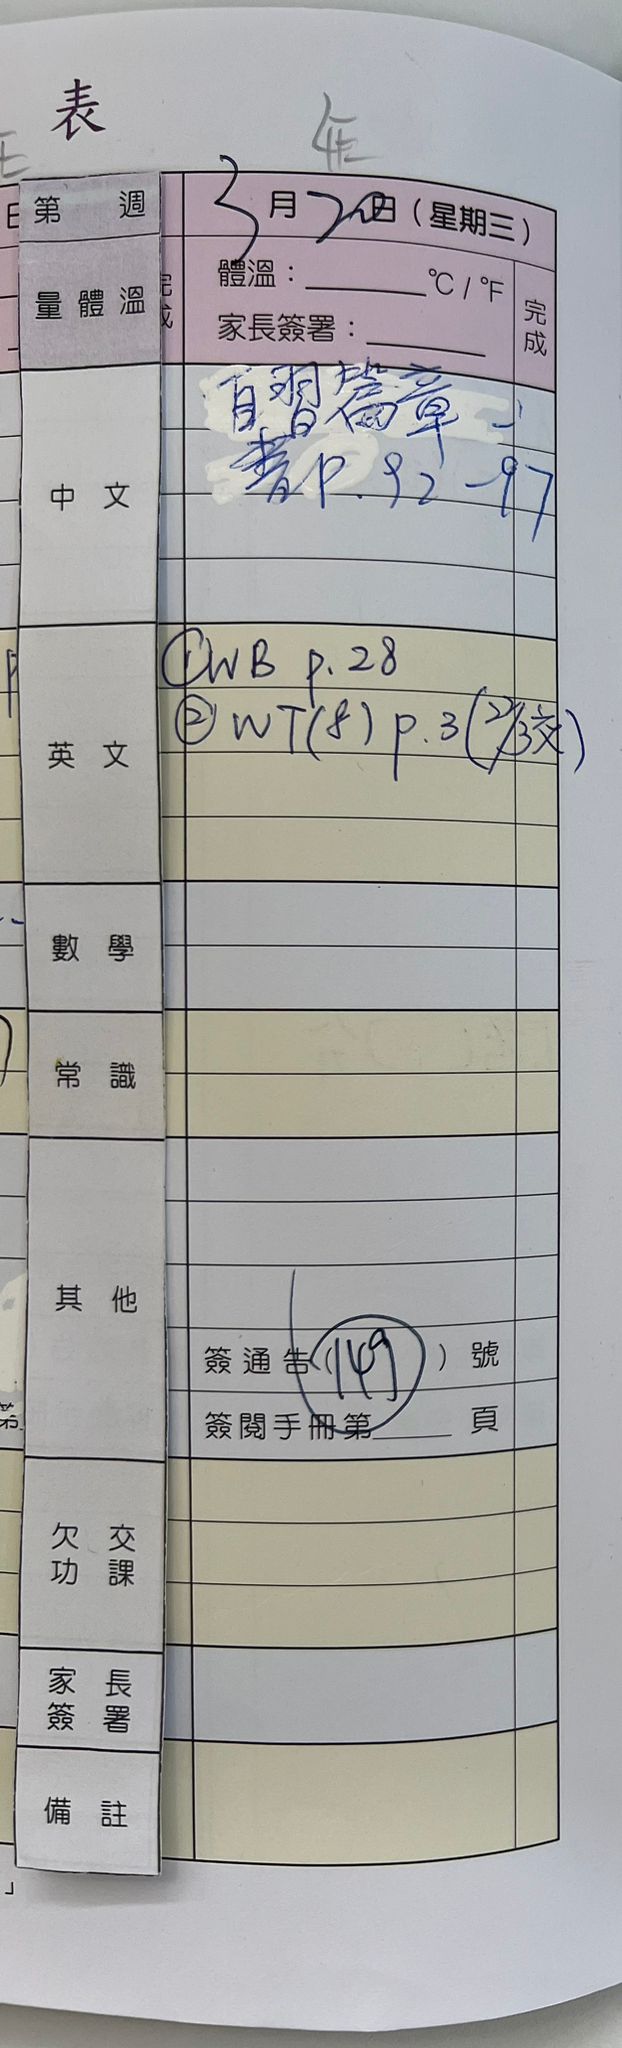 表
年
第 週
3月20日（星期三）
量體溫
體溫：______°C / °F
完成
家長簽署：______
中文
自習篇章：
書P.92-97
英文
①WB p.28
②WT(8) p.3(22/3交)
數學
常識
其他
簽通告(149)號
簽閱手冊第______頁
欠交
功課
家長
簽署
備註